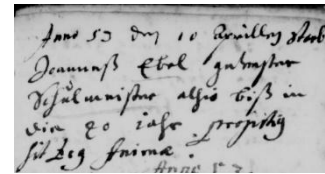 Anno 53 den 10 Aprillen starb
Joannes Ebel gewester
Schulmeister alhie biß in
die 20 jahr.
sit
Anno 53